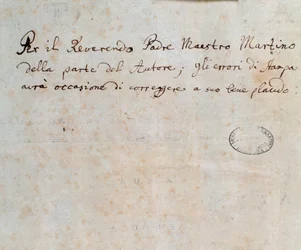 Per il Reverendo Padre Maestro Martino
della parte del Autore; gli errori di stampa
avrà occasione di correggere a suo bene placido: